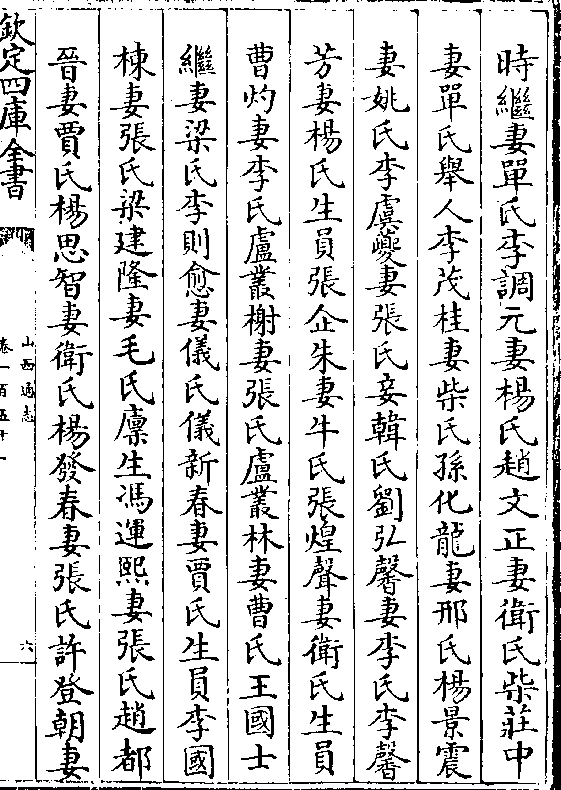 時繼妻單氏李調元妻楊氏趙文正妻衛氏柴莊中
妻單氏舉人李茂桂妻柴氏孫化龍妻邢氏楊景震
妻姚氏李虞夔妻張氏妾韓氏劉弘馨妻李氏李馨
芳妻楊氏生員張企朱妻牛氏張煌聲妻衛氏生員
曹灼妻李氏盧叢榭妻張氏盧叢林妻曹氏王國士
繼妻梁氏李則愈妻儀氏儀新春妻賈氏生員李國
棟妻張氏梁建隆妻毛氏廩生馮運熙妻張氏趙都
晉妻賈氏楊思智妻衛氏楊發春妻張氏許登朝妻
欽定四庫全書
山西通志
卷一百五十一
六